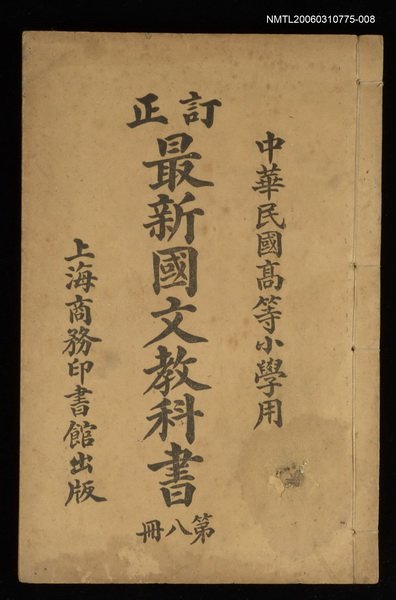 NMTL20060310775-008
中華民國高等小學用
訂正
最新國文教科書
第八冊
上海商務印書館出版